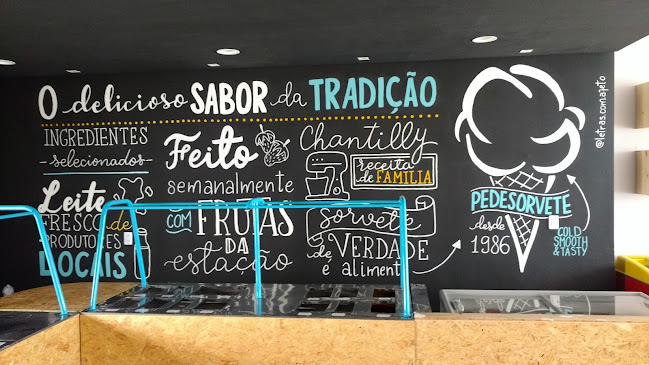 O delicioso SABOR da TRADIÇÃO
INGREDIENTES
selecionados
Leite
FRESCO de
PRODUTORES
LOCAIS
Feito
semanalmente
COM FRUTAS
DA
estação
Chantilly
receita
de FAMILIA
sorvete
de VERDADE
é aliment
PEDESORVETE
desde
1986
COLD
SMOOTH
& TASTY
@letras.com.ajeto